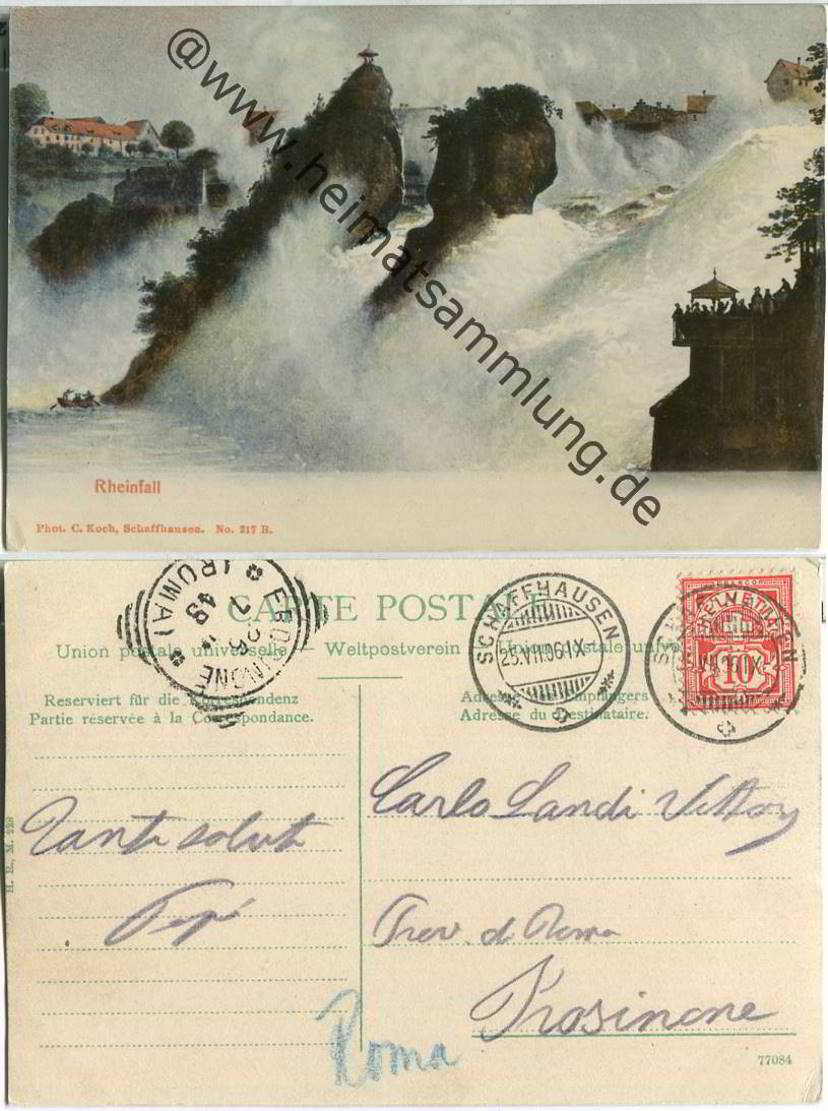 @www.heimatsammlung.de
Rheinfall
Phot. C. Koch, Schaffhausen. No. 217 B.
CARTE POSTALE
Union postale universelle. — Weltpostverein — Unione postale universale
Reserviert für die Korrespondenz
Partie réservée à la Correspondance.
Adresse des Empfängers
Adresse du Destinataire.
(ROMA)
SCHAFFHAUSEN
25.VII.06.IX
HELVETIA
10
VII.06.IX
Carlo Landi Vittorj
Tanti saluti
Pepi
Prov. di Roma
Frosinone
Roma
77084